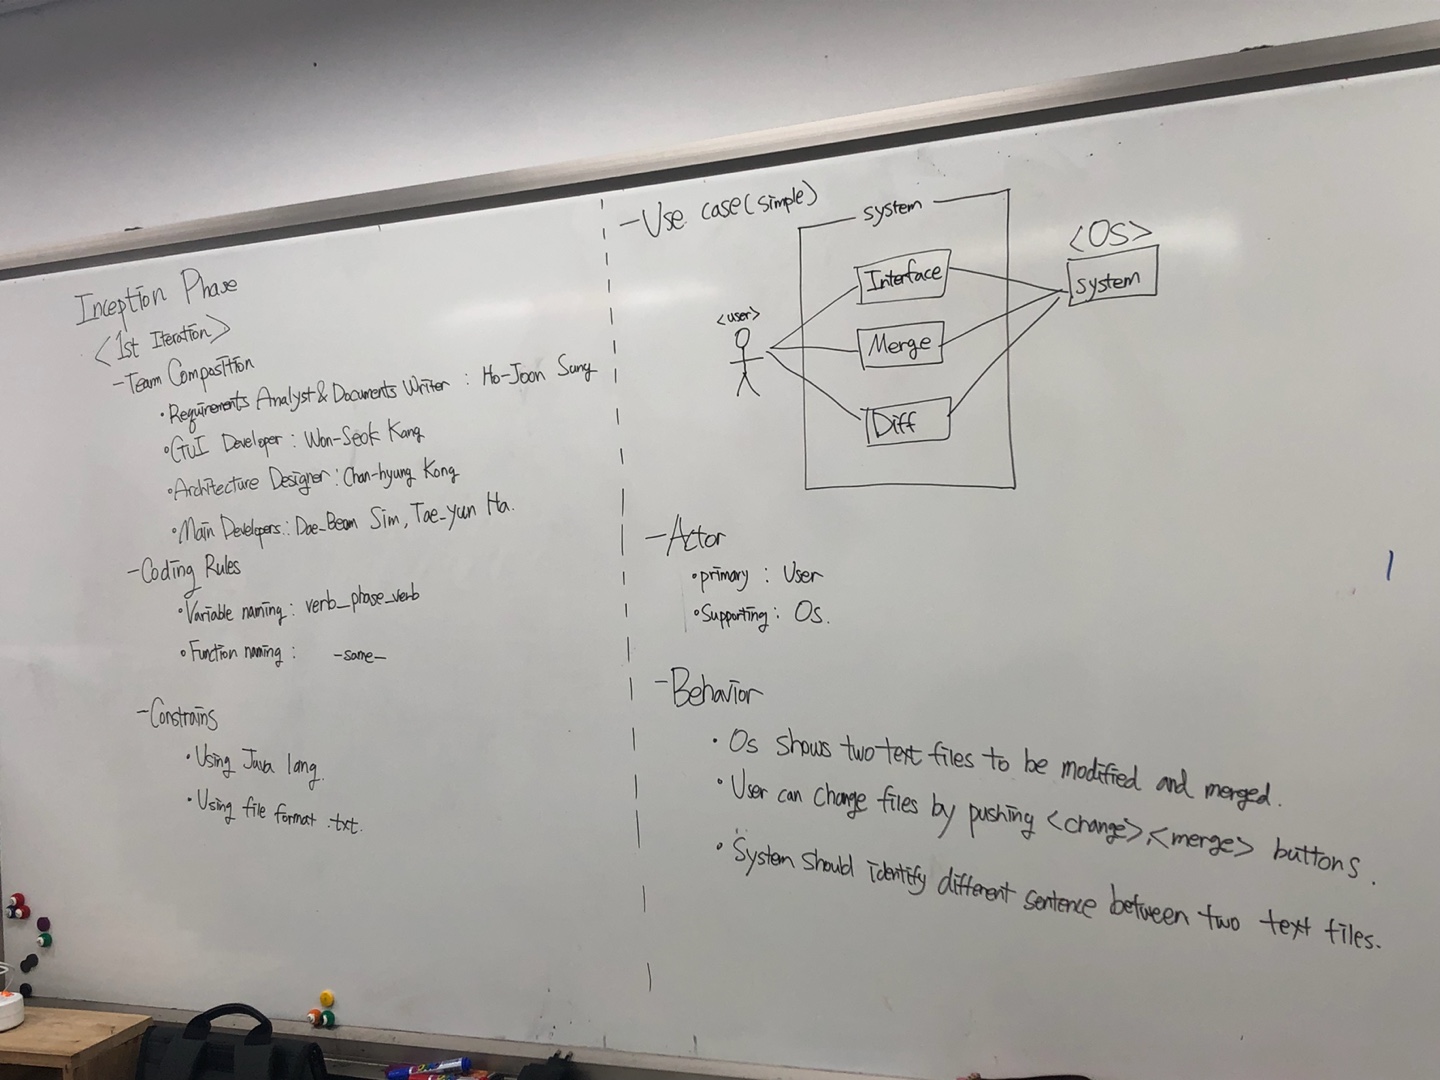 Inception Phase
<1st Iteration>
-Team Composition
• Requirements Analyst & Documents Writer : Ho-Joon Sung
• GUI Developer : Won-Seok Kang
• Architecture Designer : Chan-hyung Kong
• Main Developers : Dae-Beom Sim, Tae-yun Ha.
-Coding Rules
• Variable naming : verb_phase_verb
• Function naming : -same-
-Constrains
• Using Java lang.
• Using file format .txt.
-Use case(simple)
system
<OS>
Interface
system
<user>
Merge
Diff
-Actor
• primary : User
• Supporting : Os.
-Behavior
• Os shows two text files to be modified and merged.
• User can change files by pushing <change>,<merge> buttons.
• System should identify different sentence between two text files.